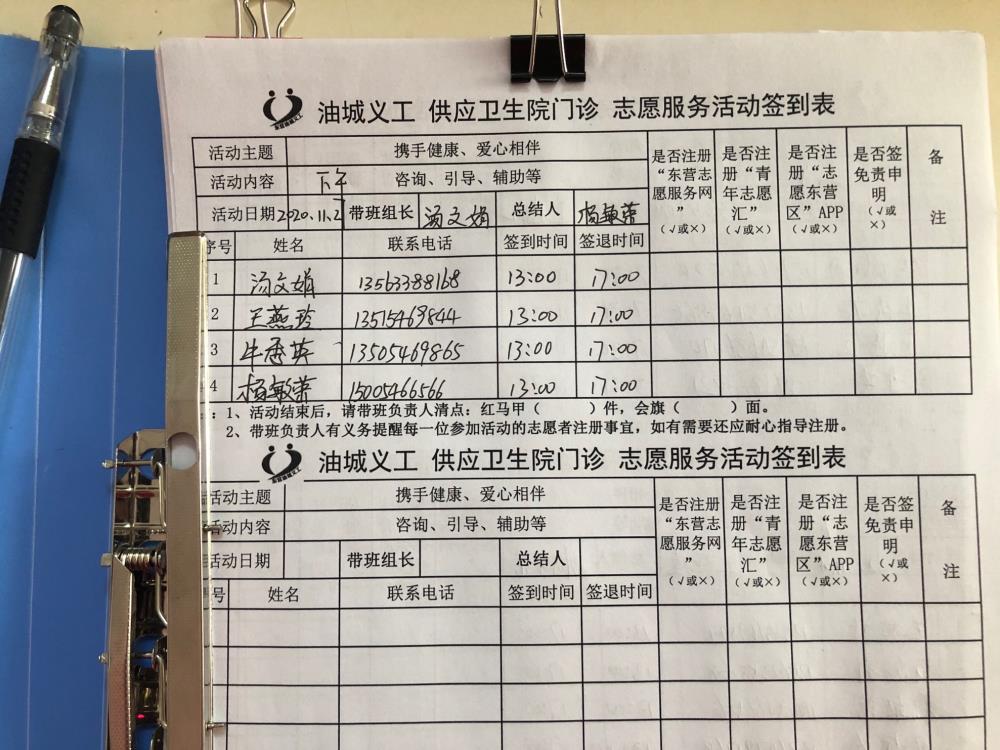 油城义工 供应卫生院门诊 志愿服务活动签到表
活动主题 携手健康、爱心相伴 是否注册“东营志愿服务网”(√或×) 是否注册“青年志愿汇”(√或×) 是否注册“志愿东营区”APP(√或×) 是否签免责申明(√或×) 备注
活动内容 下午 咨询、引导、辅助等
活动日期 2020.11.27 带班组长 汤文娟 总结人 杨敏荣
序号 姓名 联系电话 签到时间 签退时间
1 汤文娟 13563388168 13:00 17:00
2 王燕玲 13515469844 13:00 17:00
3 牛秀英 13505469865 13:00 17:00
4 杨敏荣 15005466566 13:00 17:00
:1、活动结束后，请带班负责人清点：红马甲（ ）件，会旗（ ）面。
2、带班负责人有义务提醒每一位参加活动的志愿者注册事宜，如有需要还应耐心指导注册。
油城义工 供应卫生院门诊 志愿服务活动签到表
活动主题 携手健康、爱心相伴 是否注册“东营志愿服务网”(√或×) 是否注册“青年志愿汇”(√或×) 是否注册“志愿东营区”APP(√或×) 是否签免责申明(√或×) 备注
活动内容 咨询、引导、辅助等
活动日期 带班组长 总结人
号 姓名 联系电话 签到时间 签退时间